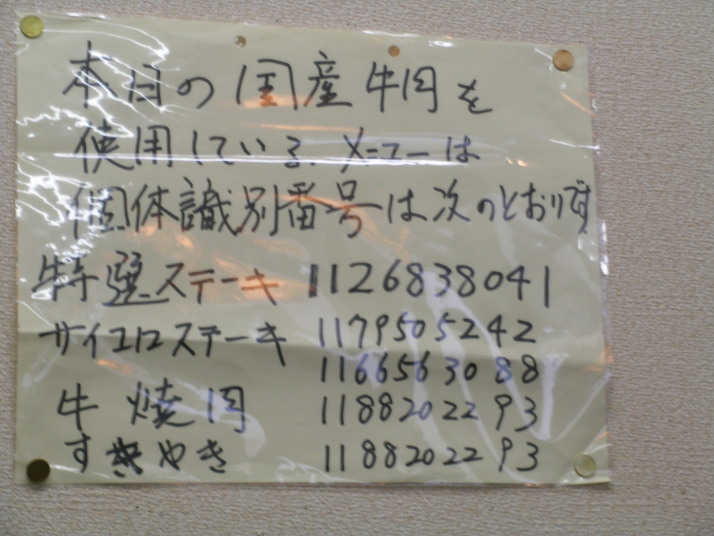 本日の国産牛肉を
使用している.メニューは
個体識別番号は次のとおりです
特選ステーキ 1126838041
サイコロステーキ 1179505242
1166563088
牛焼肉 1188202293
すきやき 1188202293